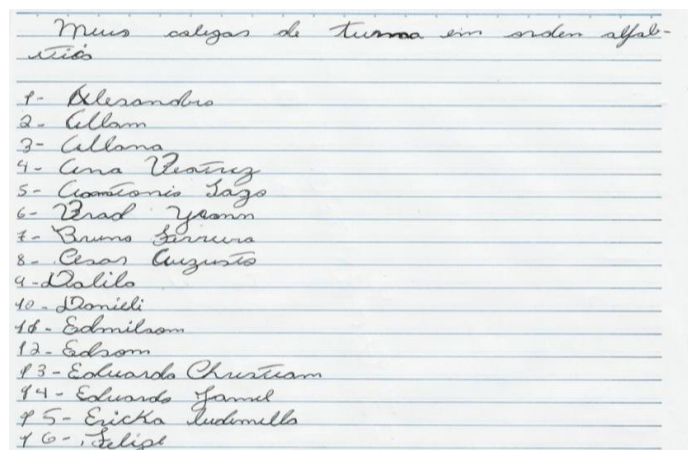 Meus colegas de turma em orden alfab-
éticos
1- Alexandra
2- Allam
3- Allana
4- Ana Beatriz
5- Antonio Iago
6- Brad Yann
7- Bruno Ferreira
8- Cesar Augusto
9- Dalila
10- Danieli
11- Edmilsom
12- Edsom
13- Eduardo Christiam
14- Eduardo Jamil
15- Ericka ludimilla
16- Felipe